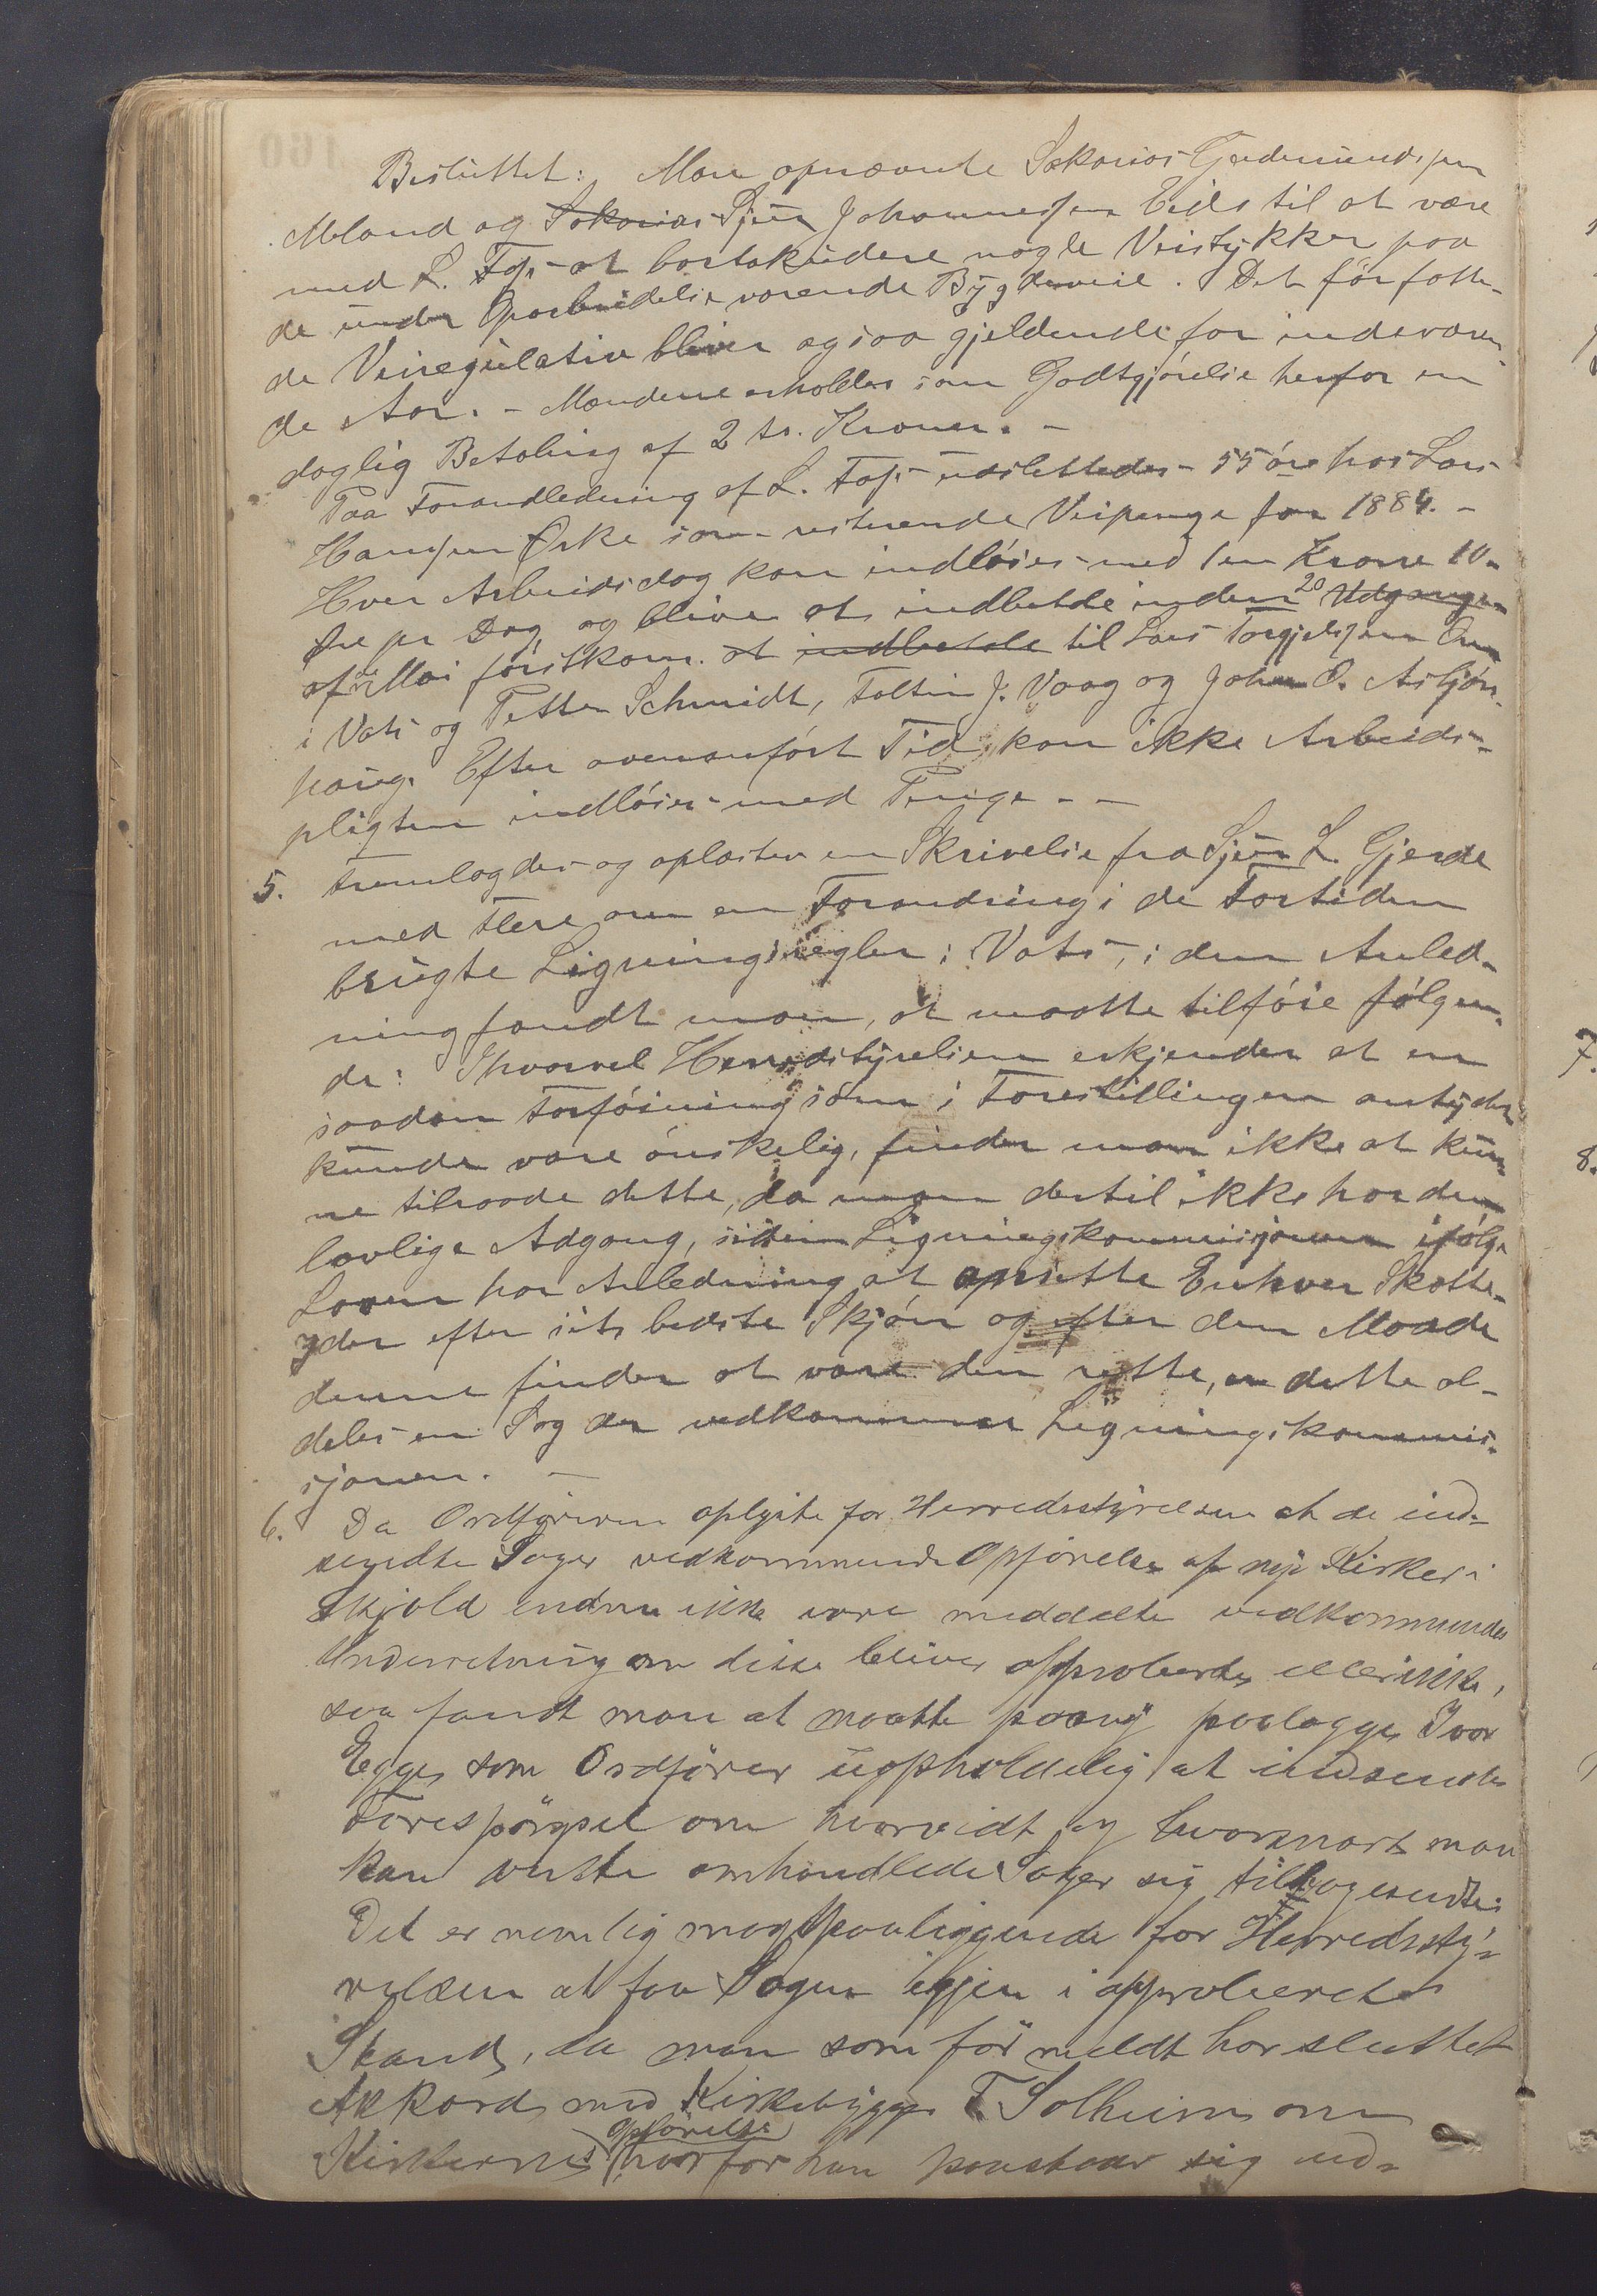 Besluttet: Man opnævnte Sakarias Gudmundsen
Meland og Sakarias Sjur Johannessen Eids til at være
med L. Fos at bortakudere nogle Veistykker paa
de under Oparbeidelse værende Bygdeveie. Det før fatte-
de Veiregulativ bliver ogsaa gjeldende for indeværen-
de Aar. - Mændene erholder som Godtgjørelse herfor en
daglig Betaling af 2 to. Kroner. -
Paa Foranledning af L. Fos udslettedes 55 øre hos Lars
Hansen Ørke som resterende Veipenge for 1884. -
Hver Arbeidsdag kan indløses med 1 en Krone 10-
Øre pr Dag og bliver at indbetale inden 20 Udgangen
af Mai førstkom. at indbetale til Lars Torgjelsen
i Vats og Petter Schmidt, Foltin J. Vaag og Johan O. Asbjørn
haug. Efter ovenanført Tid kan ikke Arbeids-
pligten indløses med Penge - -
5. Fremlagdes og oplæstes en Skrivelse fra Sjur L. Gjerde
med Flere om en Forandring i de Fortiden
brugte Ligningsregler i Vats, i den Anled-
ning fandt man, at maatte tilføie følgen-
de: Ihvorvel Herredstyrelsen erkjender at en
saadan Forføining som i Forestillingen antydet
kunde være ønskelig, finder man ikke at kun-
ne tilraade dette, da man dertil ikke har den
lovlige Adgang, siden Ligningskommisjonen ifølge
Loven har Anledning at ansette Enhver Skatte-
yder efter sit bedste Skjøn og efter den Maade
denne finder at være den rette, er dette al-
deles en Sag der vedkommer Ligningskommis-
sjonen. -
6. Da Ordføreren oplyste for Herredsstyrelsen at de ind-
sendte Sager vedkommende Opførelse af nye Kirker i
Skjold endnu ikke være meddelte vedkommendes
Underretning om disse bliver approberte eller ikke,
saa fandt man at maatte paany paalægge Ivar
Egge som Ordfører uopholdelig at indsende
Forespørgsel om hvorvidt og hvornart man
kan vente omhandlede Sager sig tilbagesendte.
Det er nemlig magtpaaliggende for Herredssty-
relsen at faa Sagen igjen i approberet
Stand, da man som før meldt har sluttet
Akkord med Kirkebygger T Solheim om
Kirkernes opførelse hvorfor han paastaar sig ud-